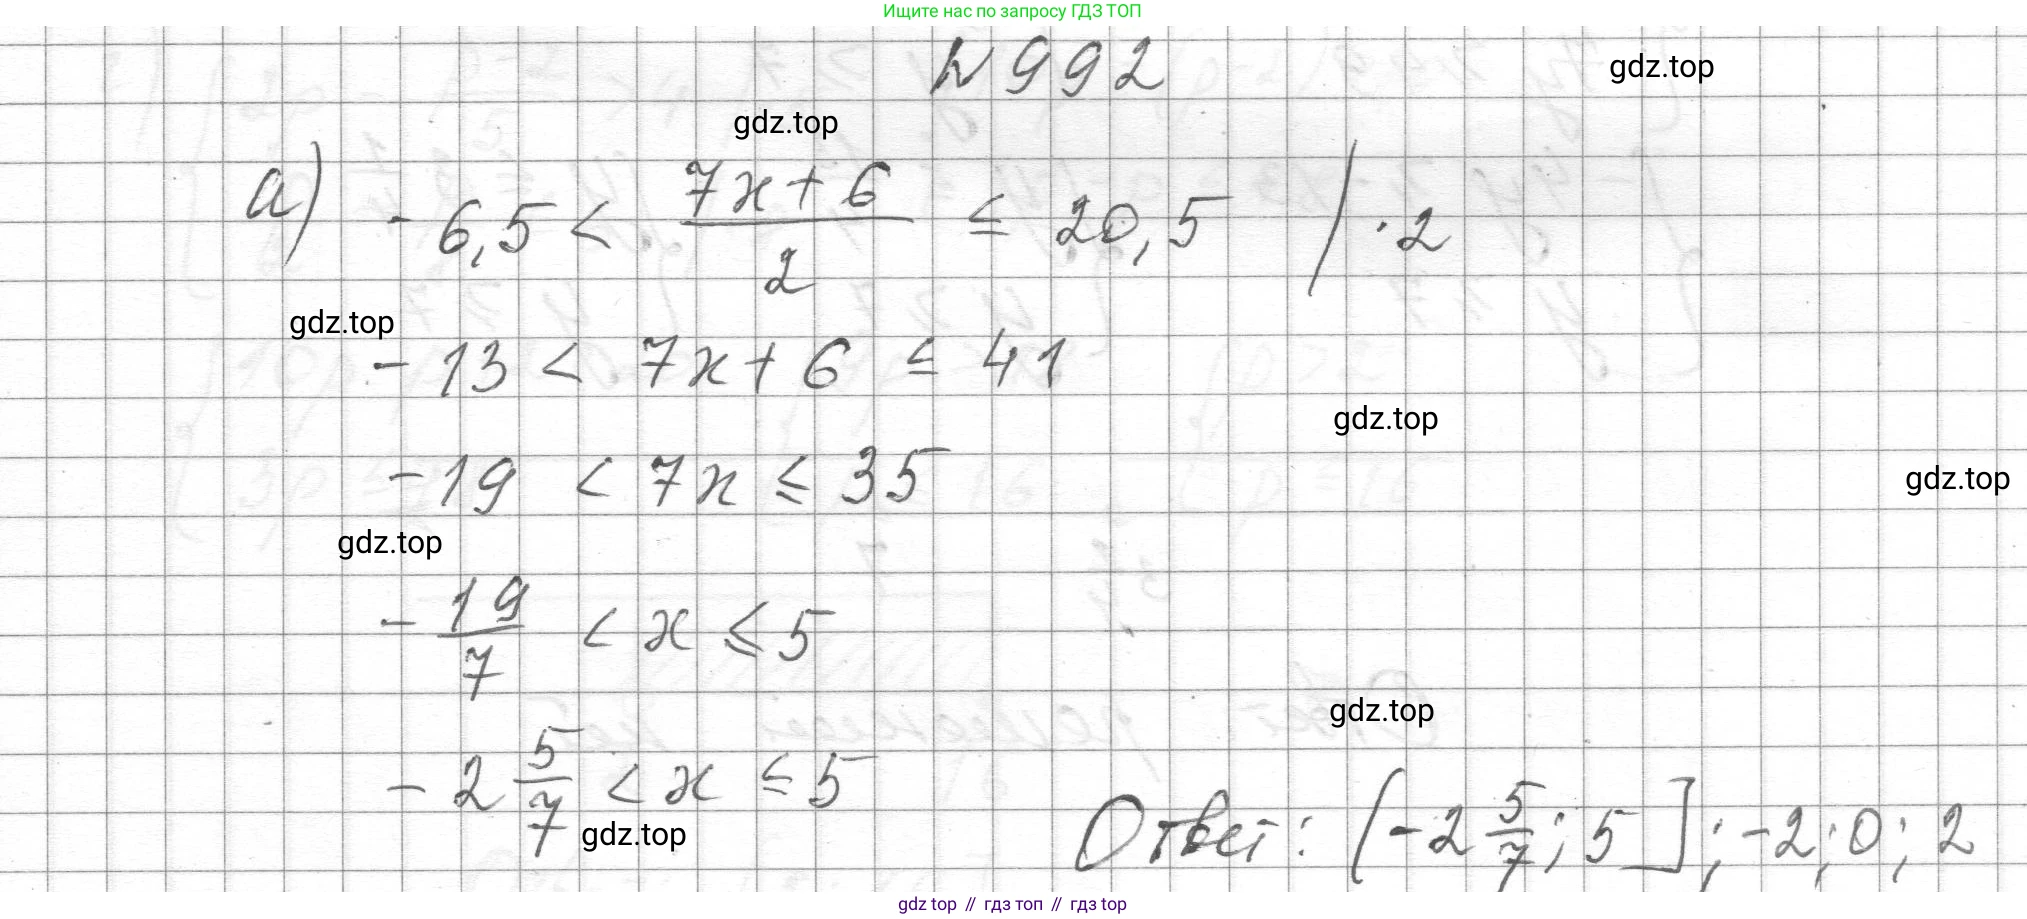 Ищите нас по запросу ГДЗ ТОП
N 992
gdz.top
gdz.top
а) -6,5 < (7x+6)/2 ≤ 20,5 | ·2
gdz.top
-13 < 7x+6 ≤ 41
gdz.top
-19 < 7x ≤ 35
gdz.top
gdz.top
-19/7 < x ≤ 5
gdz.top
-2 5/7 < x ≤ 5
gdz.top
Ответ: (-2 5/7; 5]; -2; 0; 2
gdz top // гдз топ // gdz top